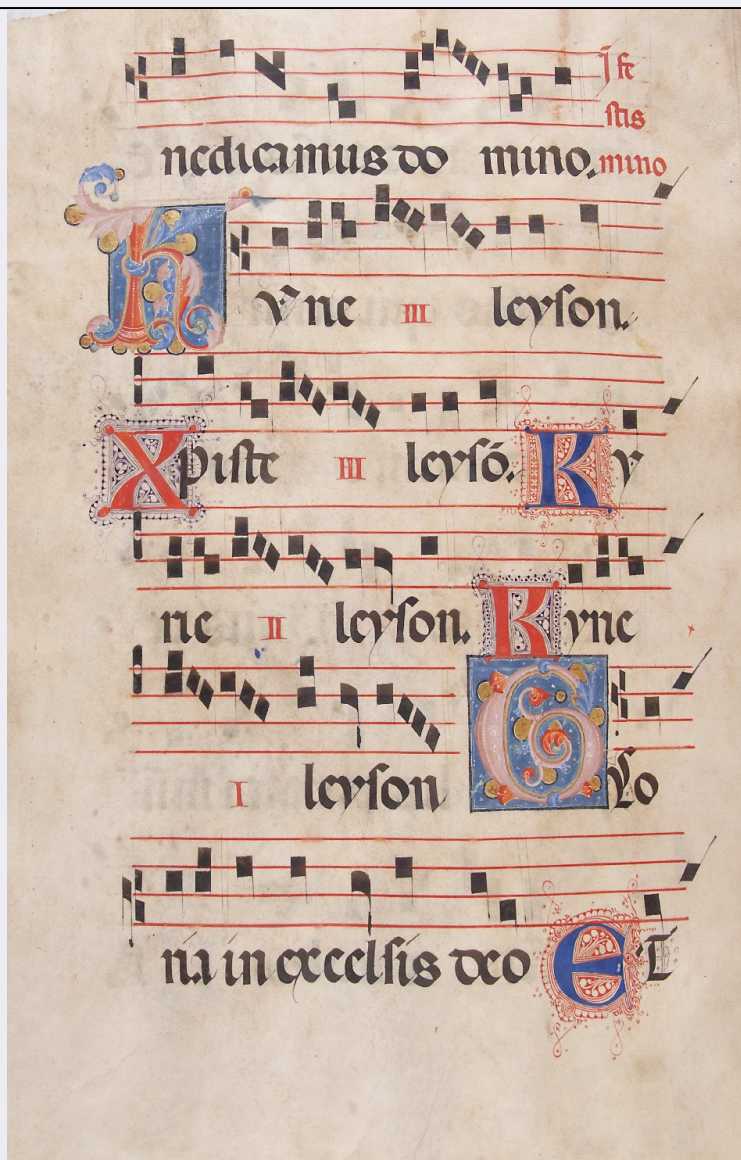 ı̄ fe
stis
nedicamus do mino. mino
Kyrie III leyson.
Xpiste III leysō. Ky
rie II leyson. Kyrie
I leyson Glo
ria in excelsis deo Et